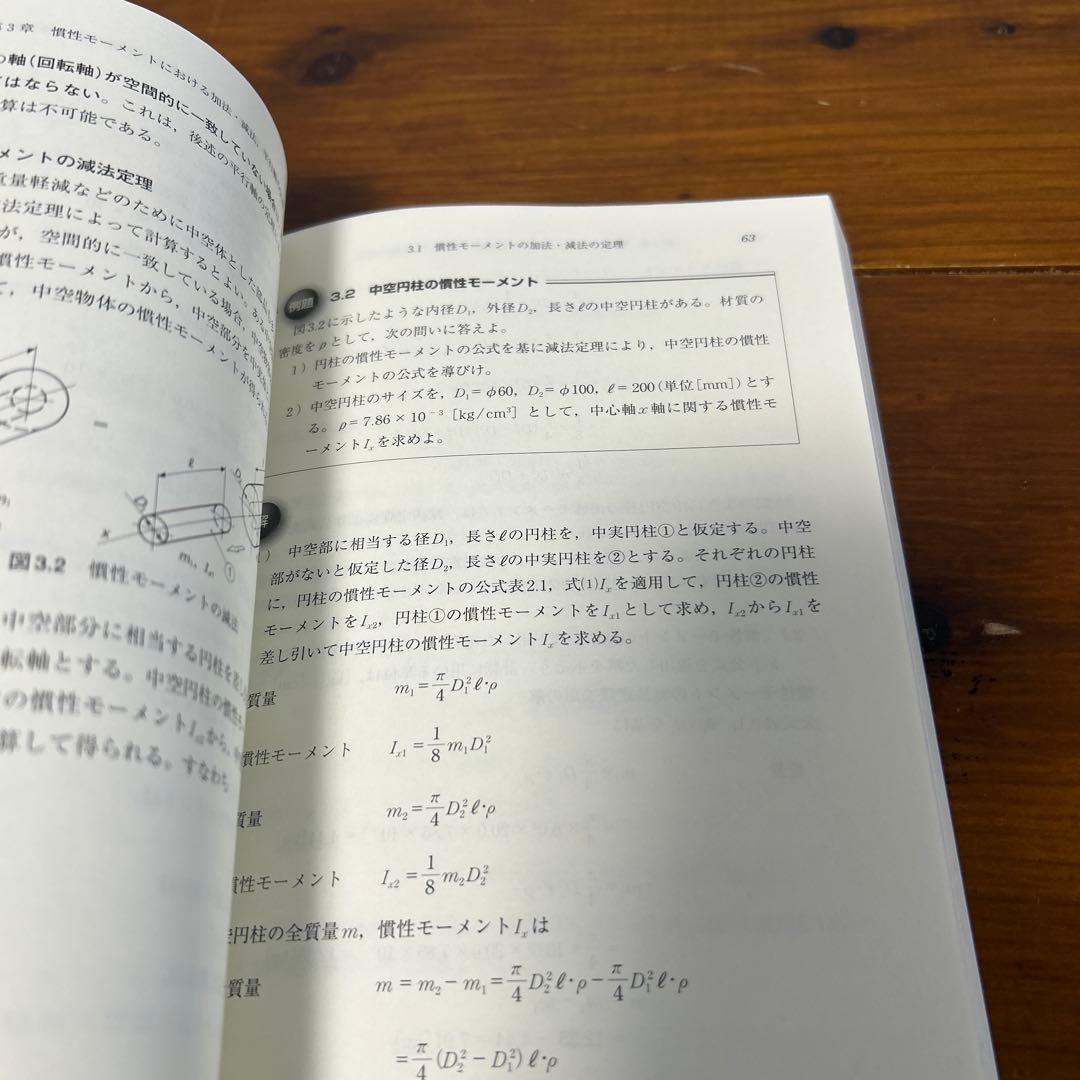 章 慣性モーメントにおける加法・減法
の軸(回転軸)が空間的に一致していない場合
てはならない。これは,後述の平行軸の定理
算は不可能である。
メントの減法定理
質量軽減などのために中空体とした部品
法定理によって計算するとよい。ある
が,空間的に一致している場合,中実
慣性モーメントから,中空部分を中実
て,中空物体の慣性モーメントが得られ
ℓ
D₁
x
m₁, Iₓ₁
①
図3.2 慣性モーメントの減法
中空部分に相当する円柱を
転軸とする。中空円柱の慣性
の慣性モーメントIₓ₂から,
算して得られる。すなわち
3.1 慣性モーメントの加法・減法の定理 63
例題 3.2 中空円柱の慣性モーメント
図3.2に示したような内径D₁,外径D₂,長さℓの中空円柱がある。材質の
密度をρとして,次の問いに答えよ。
1)円柱の慣性モーメントの公式を基に減法定理により,中空円柱の慣性
モーメントの公式を導びけ。
2)中空円柱のサイズを,D₁=φ60,D₂=φ100,ℓ=200(単位[mm])とす
る。ρ=7.86×10⁻³[kg/cm³]として,中心軸x軸に関する慣性モ
ーメントIₓを求めよ。
解
) 中空部に相当する径D₁,長さℓの円柱を,中実円柱①と仮定する。中空
部がないと仮定した径D₂,長さℓの中実円柱を②とする。それぞれの円柱
に,円柱の慣性モーメントの公式表2.1,式(1)Iₓを適用して,円柱②の慣性
モーメントをIₓ₂,円柱①の慣性モーメントをIₓ₁として求め,Iₓ₂からIₓ₁を
差し引いて中空円柱の慣性モーメントIₓを求める。
質量 m₁=π/4 D₁²ℓ·ρ
慣性モーメント Iₓ₁=1/8 m₁D₁²
質量 m₂=π/4 D₂²ℓ·ρ
慣性モーメント Iₓ₂=1/8 m₂D₂²
空円柱の全質量m,慣性モーメントIₓは
質量 m=m₂−m₁=π/4 D₂²ℓ·ρ−π/4 D₁²ℓ·ρ
=π/4 (D₂²−D₁²)ℓ·ρ